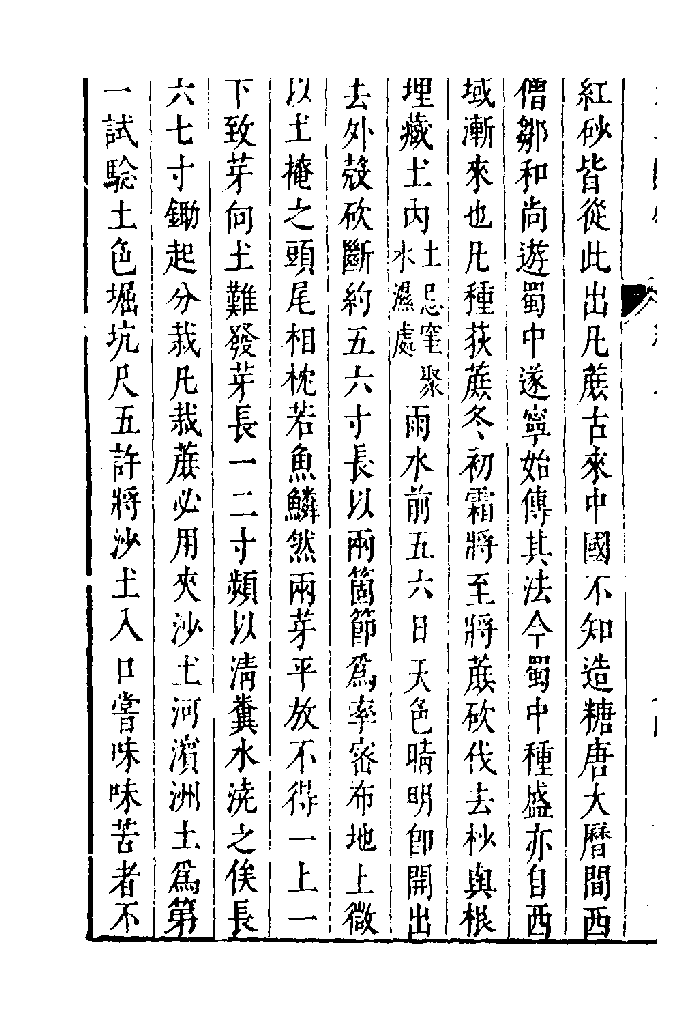 紅砂皆從此出凡蔗古來中國不知造糖唐大曆間西
僧鄒和尚遊蜀中遂寧始傳其法今蜀中種盛亦自西
域漸來也凡種荻蔗冬初霜將至將蔗砍伐去杪與根
埋藏土內土忌窪聚水濕處雨水前五六日天色晴明即開出
去外殼砍斷約五六寸長以兩箇節爲率密布地上微
以土掩之頭尾相枕若魚鱗然兩芽平放不得一上一
下致芽向土難發芽長一二寸頻以清糞水澆之俟長
六七寸鋤起分栽凡栽蔗必用夾沙土河濱洲土爲第
一試驗土色堀坑尺五許將沙土入口嘗味味苦者不